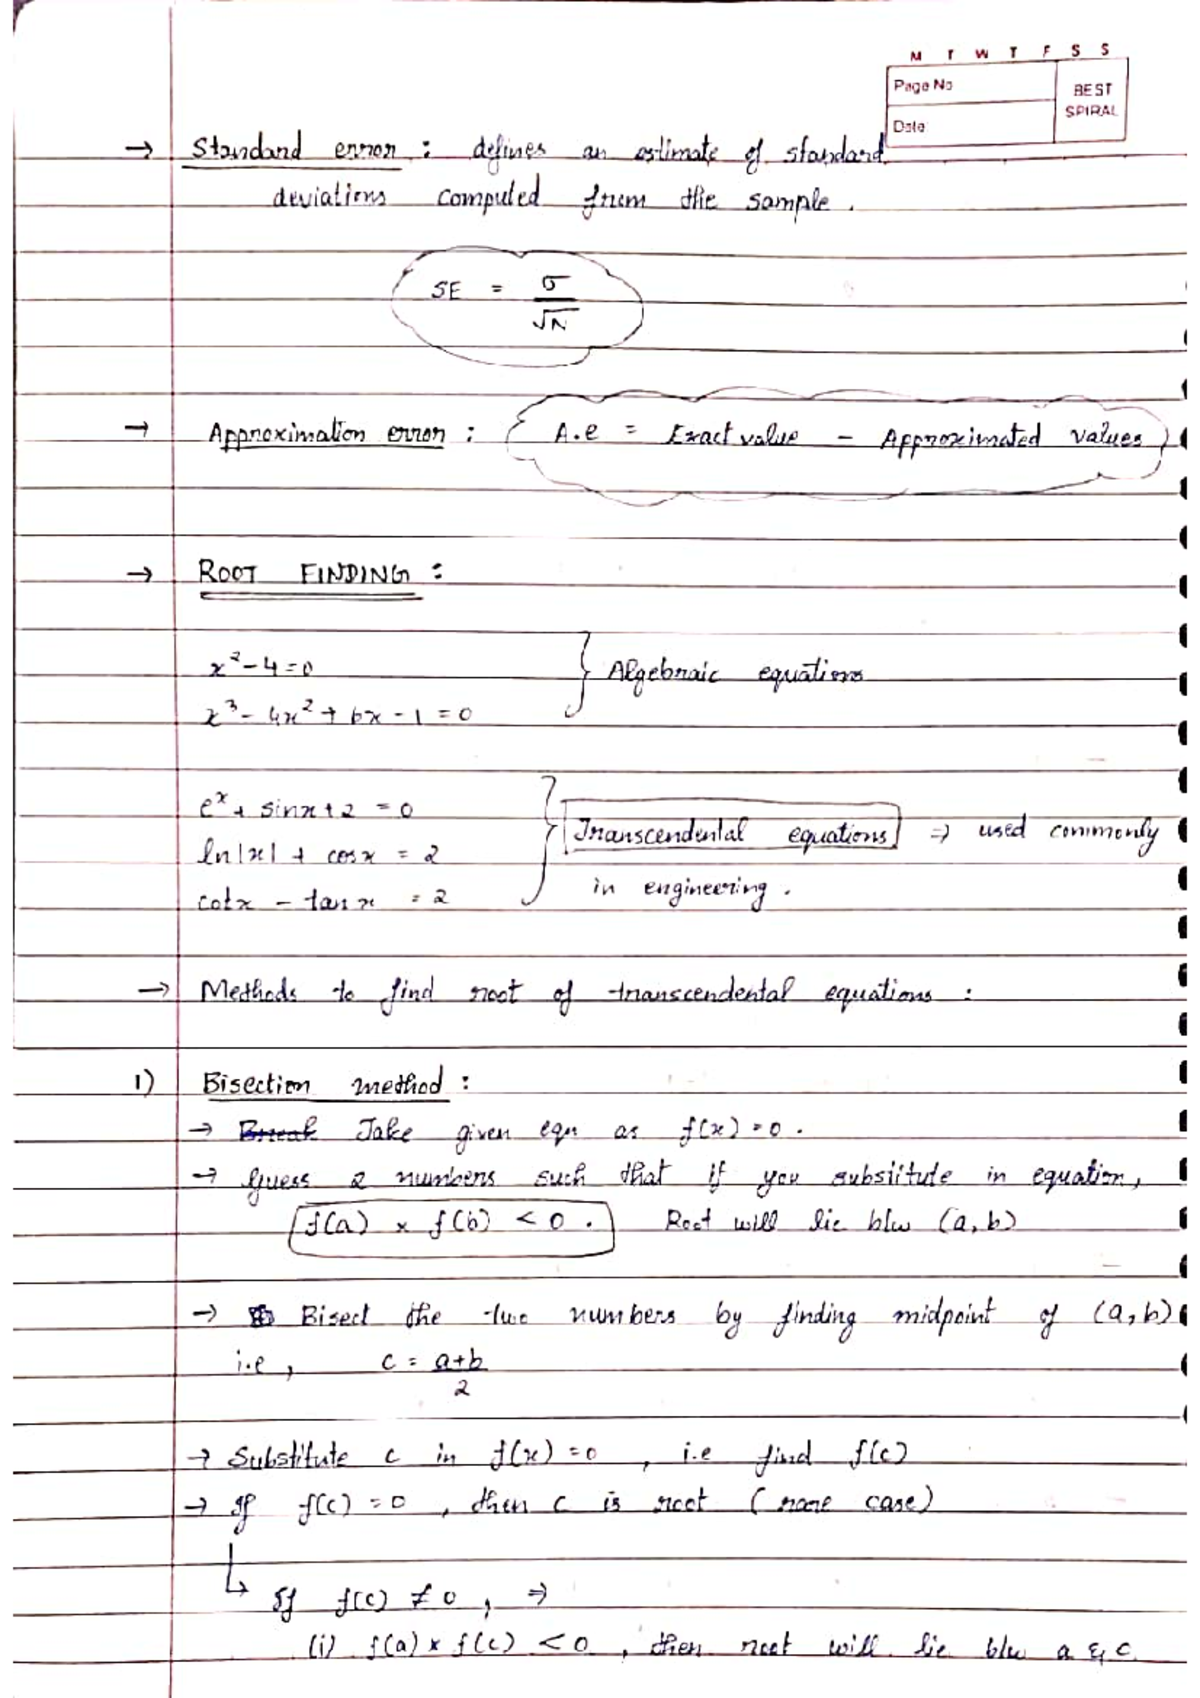 M T W T F S S
Page No
BEST SPIRAL
Date:
→ Standard error : defines an estimate of standard
deviations computed from the sample.
SE = σ/√N
→ Approximation error : A.e = Exact value - Approximated values
→ ROOT FINDING :
x² - 4 = 0 } Algebraic equations
x³ - 4x² + 6x - 1 = 0
eˣ + sinx + 2 = 0
ln|x| + cosx = 2 } Transcendental equations ⇒ used commonly
cotx - tanx = 2 in engineering.
→ Methods to find root of transcendental equations :
1) Bisection method :
→ Break Take given eqn as f(x) = 0.
→ Guess 2 numbers such that if you substitute in equation,
f(a) × f(b) < 0. Root will lie b/w (a, b)
→ Bisect the two numbers by finding midpoint of (a, b)
i.e, c = a+b/2
→ Substitute c in f(x) = 0, i.e find f(c)
→ If f(c) = 0, then c is root (rare case)
↳ If f(c) ≠ 0, ⇒
(i) f(a) × f(c) < 0, then root will lie b/w a & c